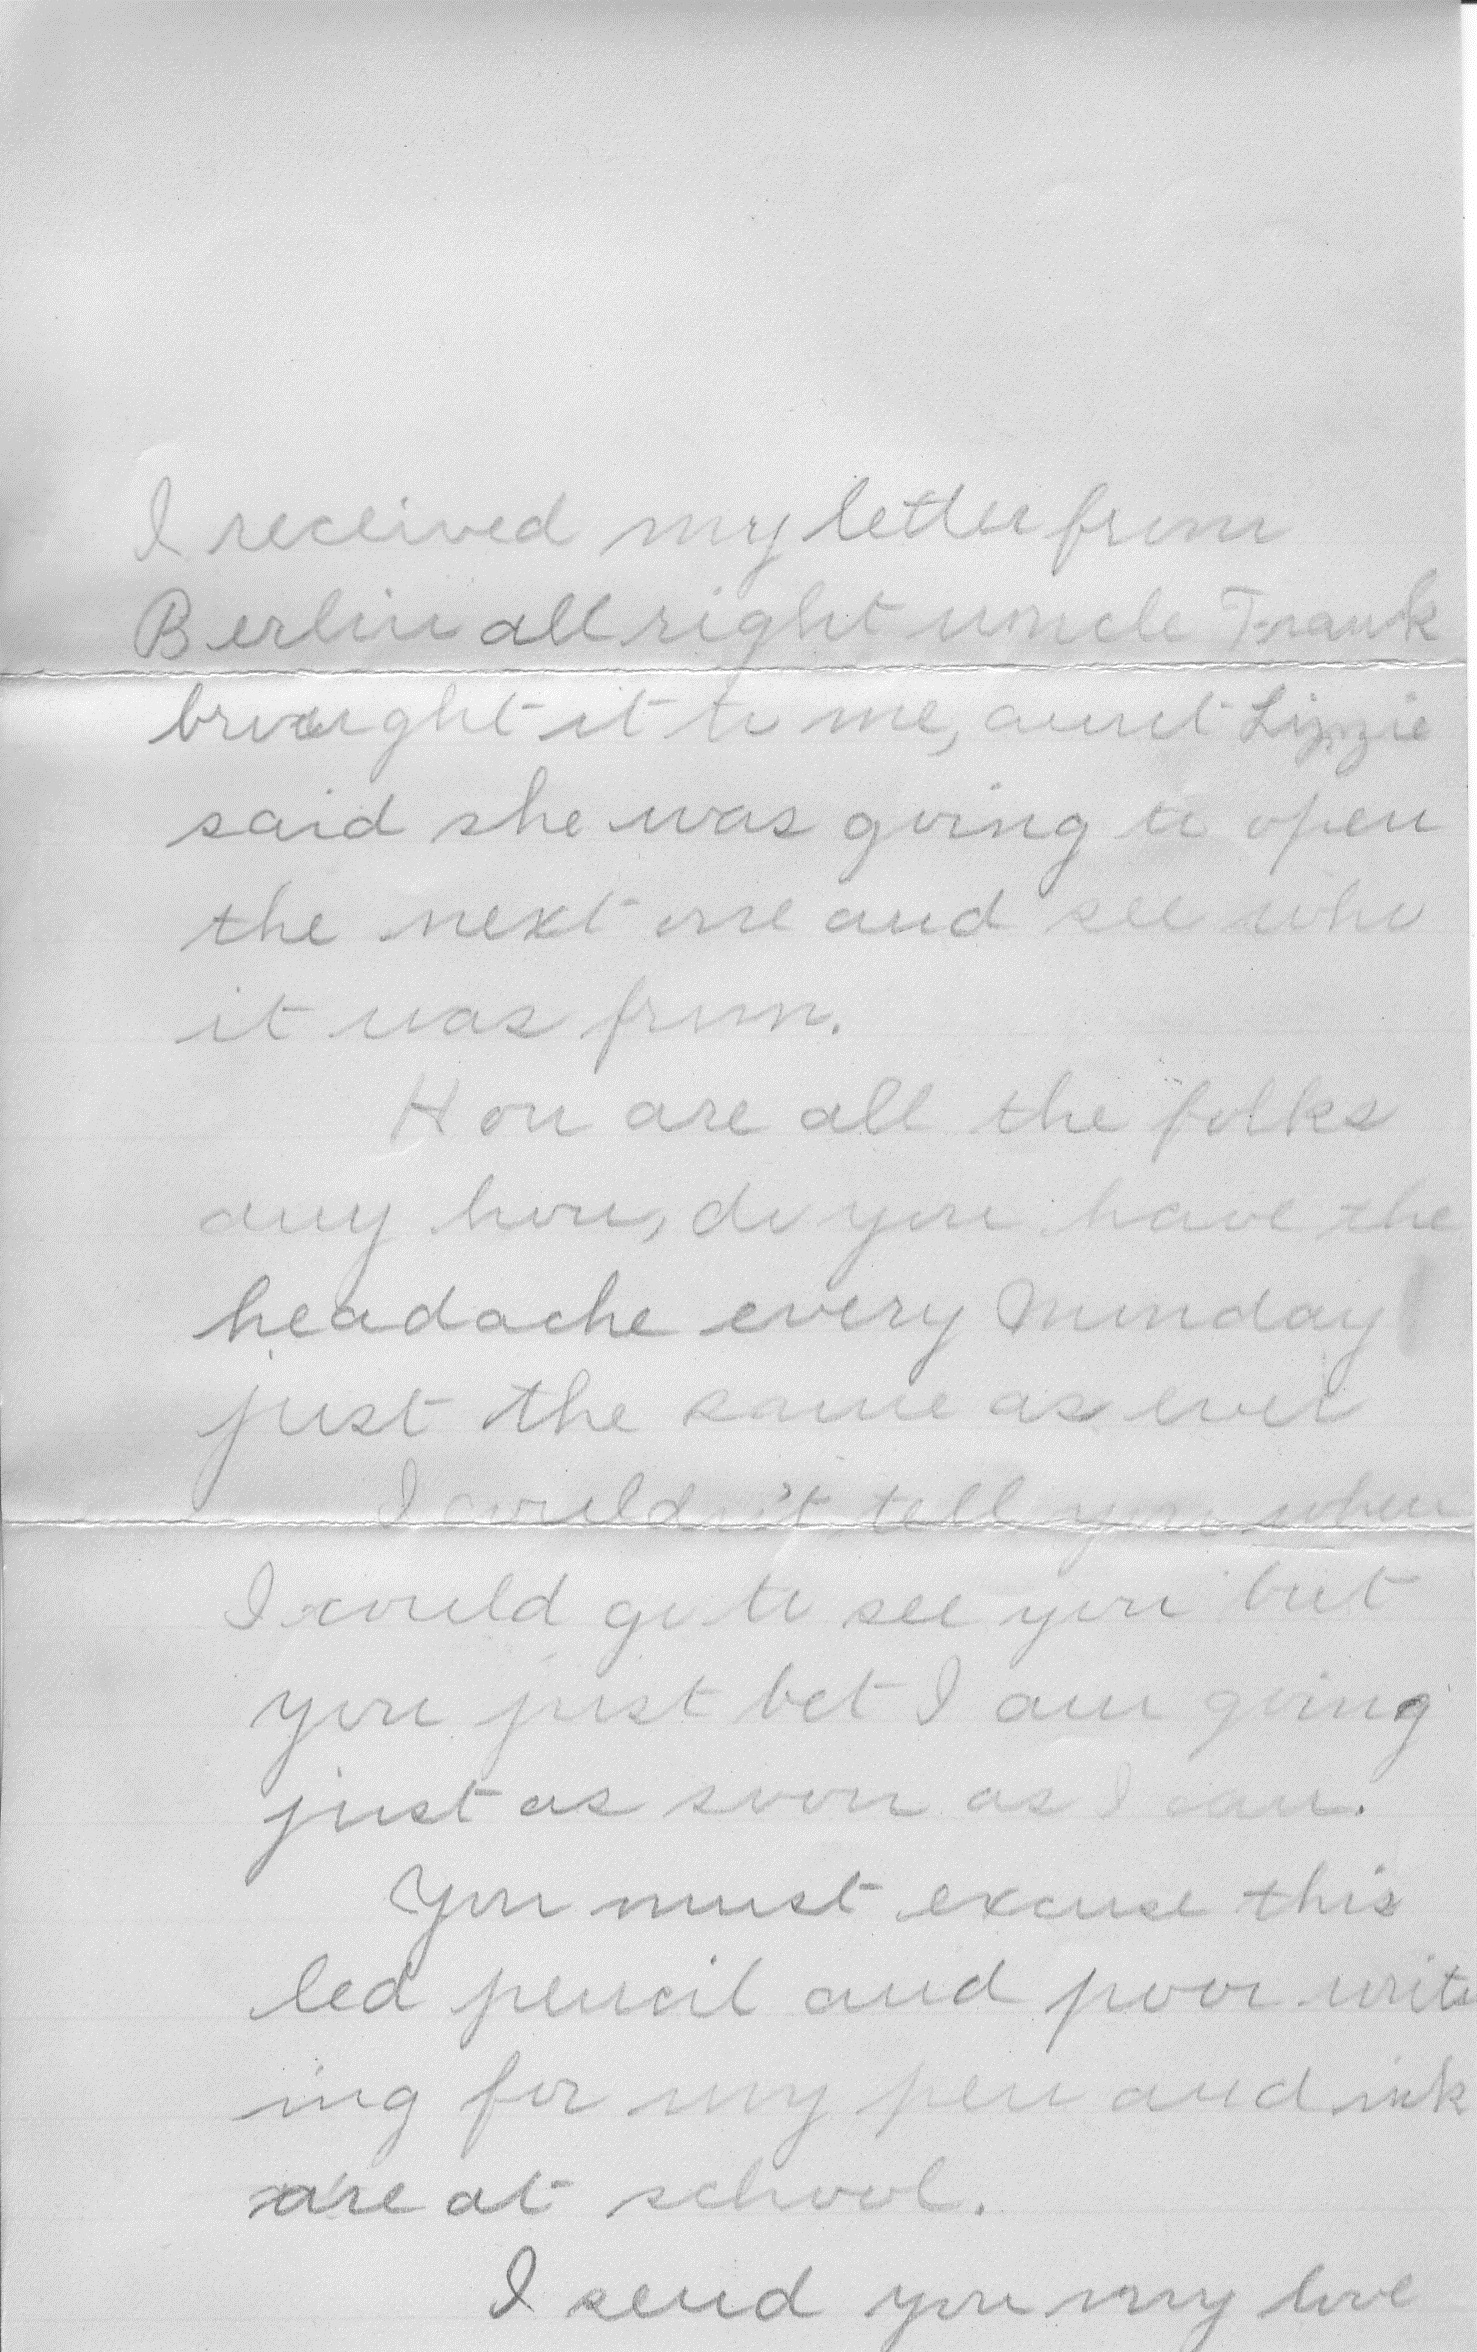 I received my letter from
Berlin all right uncle Frank
brought it to me, aunt Lizzie
said she was going to open
the next one and see who
it was from.
How are all the folks
any how, do you have the
headache every Munday
just the same as ever
I couldn't tell you when
I could go to see you but
you just bet I am going
just as soon as I can.
You must excuse this
led pencil and poor writ
ing for my pen and ink
are at school.
I send you my love